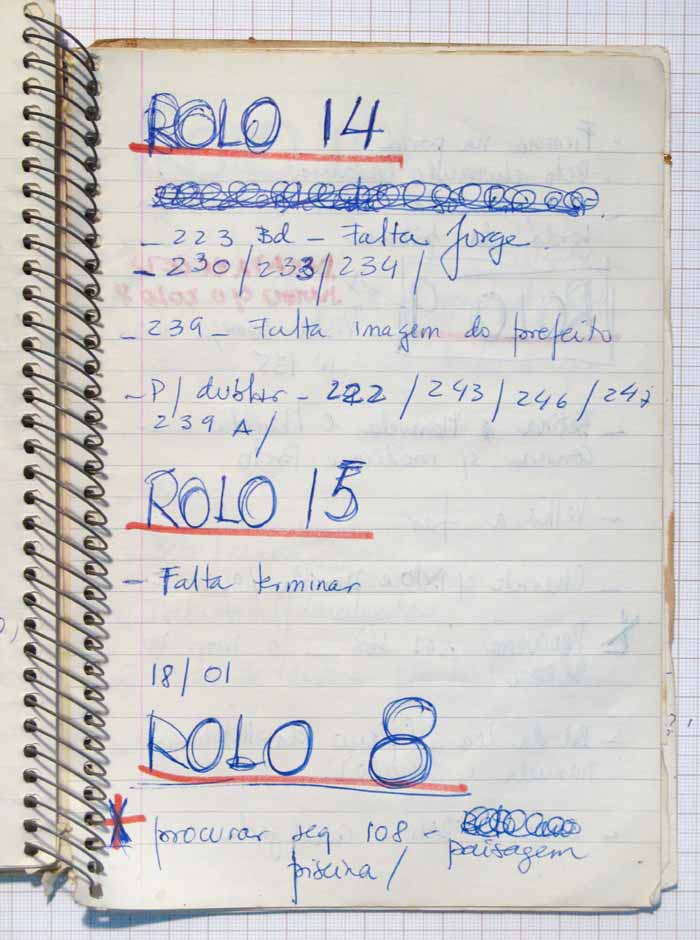 ROLO 14
- 223 Bd - Falta Jorge
- 230 / 233 / 234 /
- 239 - Falta imagem do prefeito
- P/ dublar - 222 / 243 / 246 / 247
239 A /
ROLO 15
- Falta terminar
18/01
ROLO 8
procurar seq 108 -
paisagem
piscina /